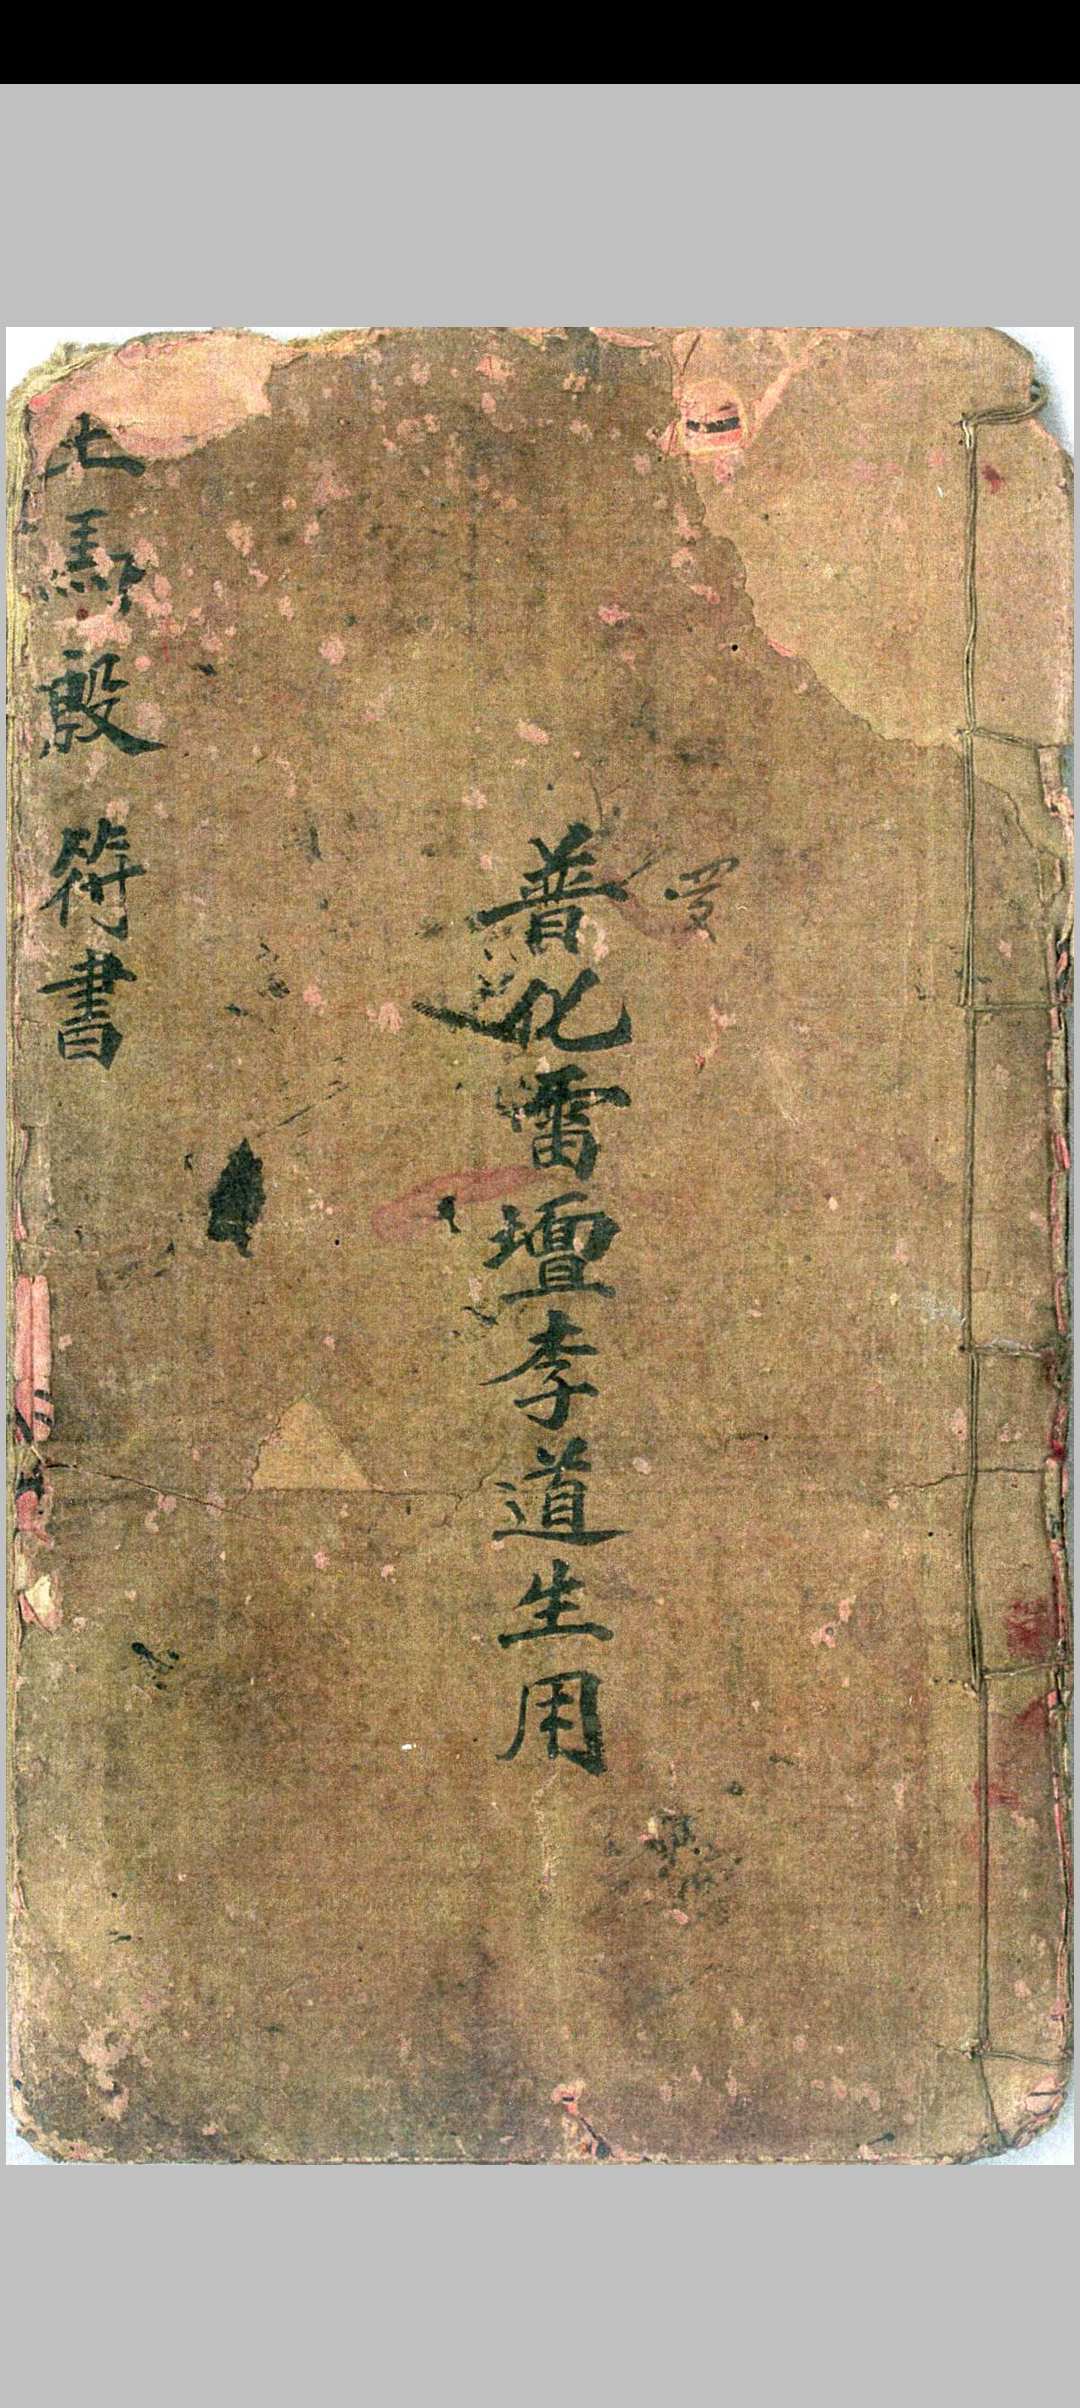 普化雷壇李道生用
殷符書